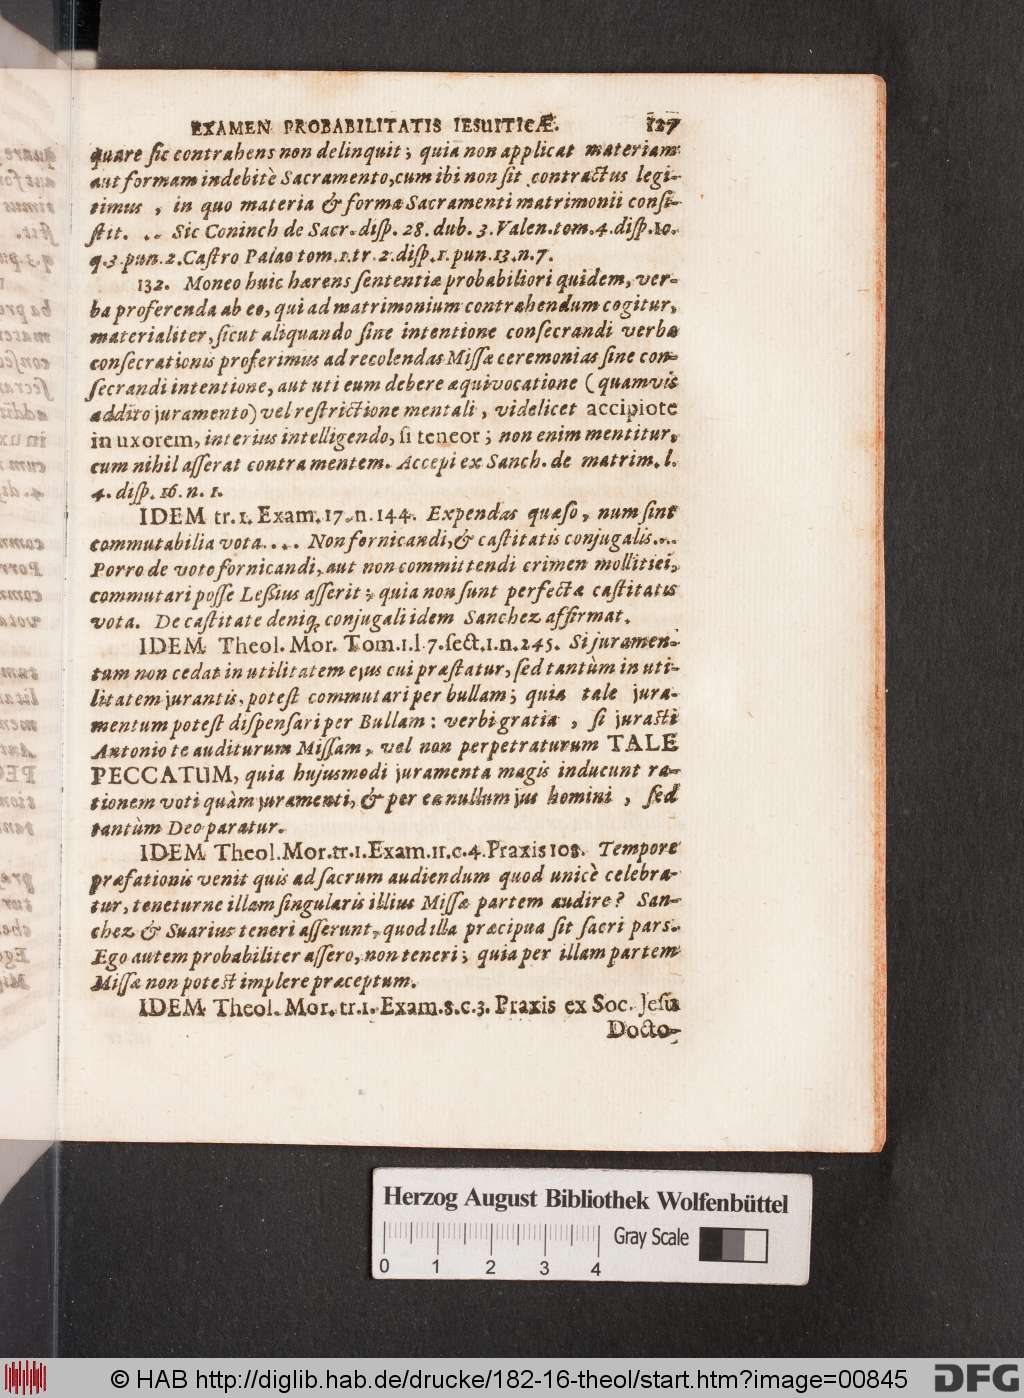 EXAMEN PROBABILITATIS IESUITICÆ. 127
quare ſic contrahens non delinquit; quia non applicat materiam
aut formam indebitè Sacramento, cum ibi non ſit contractus legi-
timus, in quo materia & forma Sacramenti matrimonii conſi-
ſtit. .. Sic Coninch de Sacr. diſp. 28. dub. 3. Valen. tom. 4. diſp. 10.
q. 3. pun. 2. Caſtro Palao tom. 1. tr. 2. diſp. 1. pun. 13. n. 7.
132. Moneo huic hærens ſententiæ probabiliori quidem, ver-
ba proferenda ab eo, qui ad matrimonium contrahendum cogitur,
materialiter, ſicut aliquando ſine intentione conſecrandi verba
conſecrationis proferimus ad recolendas Miſſæ ceremonias ſine con-
ſecrandi intentione, aut uti eum debere æquivocatione (quamvis
addito juramento) vel reſtrictione mentali, videlicet accipio te
in uxorem, interius intelligendo, ſi teneor; non enim mentitur,
cum nihil aſſerat contra mentem. Accepi ex Sanch. de matrim. l.
4. diſp. 16. n. 1.
IDEM tr. 1. Exam. 17. n. 144. Expendas quæſo, num ſint
commutabilia vota.... Non fornicandi, & caſtitatis conjugalis...
Porro de voto fornicandi, aut non committendi crimen mollitiei,
commutari poſſe Leſſius aſſerit; quia non ſunt perfectæ caſtitatis
vota. De caſtitate deniq; conjugali idem Sanchez affirmat.
IDEM Theol. Mor. Tom. 1. l. 7. ſect. 1. n. 245. Si juramen-
tum non cedat in utilitatem ejus cui præſtatur, ſed tantùm in uti-
litatem jurantis, poteſt commutari per bullam; quia tale jura-
mentum poteſt diſpenſari per Bullam: verbi gratia, ſi juraſti
Antonio te auditurum Miſſam, vel non perpetraturum TALE
PECCATUM, quia hujusmodi juramenta magis inducunt ra-
tionem voti quàm juramenti, & per ea nullum jus homini, ſed
tantùm Deo paratur.
IDEM Theol. Mor. tr. 1. Exam. 11. c. 4. Praxis 108. Tempore
præfationis venit quis ad ſacrum audiendum quod unicè celebra-
tur, teneturne illam ſingularis illius Miſſæ partem audire? San-
chez & Suarius teneri aſſerunt, quod illa præcipua ſit ſacri pars.
Ego autem probabiliter aſſero, non teneri; quia per illam partem
Miſſæ non poteſt implere præceptum.
IDEM Theol. Mor. tr. 1. Exam. 8. c. 3. Praxis ex Soc. Jeſu
Docto-
Herzog August Bibliothek Wolfenbüttel
Gray Scale
0 1 2 3 4
© HAB http://diglib.hab.de/drucke/182-16-theol/start.htm?image=00845
DFG